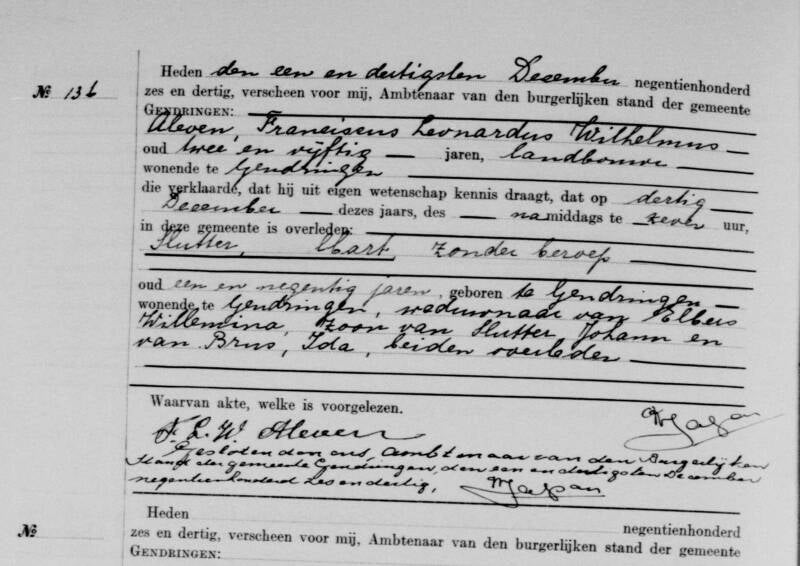 Heden den een en dertigsten December negentienhonderd
№ 136 zes en dertig, verscheen voor mij, Ambtenaar van den burgerlijken stand der gemeente
GENDRINGEN:
Aleven, Franciscus Leonardus Wilhelmus
oud twee en vijftig — jaren, landbouwer
wonende te Gendringen
die verklaarde, dat hij uit eigen wetenschap kennis draagt, dat op dertig
December — dezes jaars, des — namiddags te zeven uur,
in deze gemeente is overleden:
Slutter, Mart, zonder beroep
oud een en negentig jaren, geboren te Gendringen —
wonende te Gendringen, weduwnaar van Elbers
Willemina, zoon van Slutter, Johann en
van Brus, Ida, beiden overleden —
Waarvan akte, welke is voorgelezen.
F. L. W. Aleven
Gesloten door ons, Ambtenaar van den Burgerlijken
Stand der gemeente Gendringen, den een en dertigsten December
negentienhonderd zes en dertig,
Heden negentienhonderd
№ zes en dertig, verscheen voor mij, Ambtenaar van den burgerlijken stand der gemeente
GENDRINGEN: